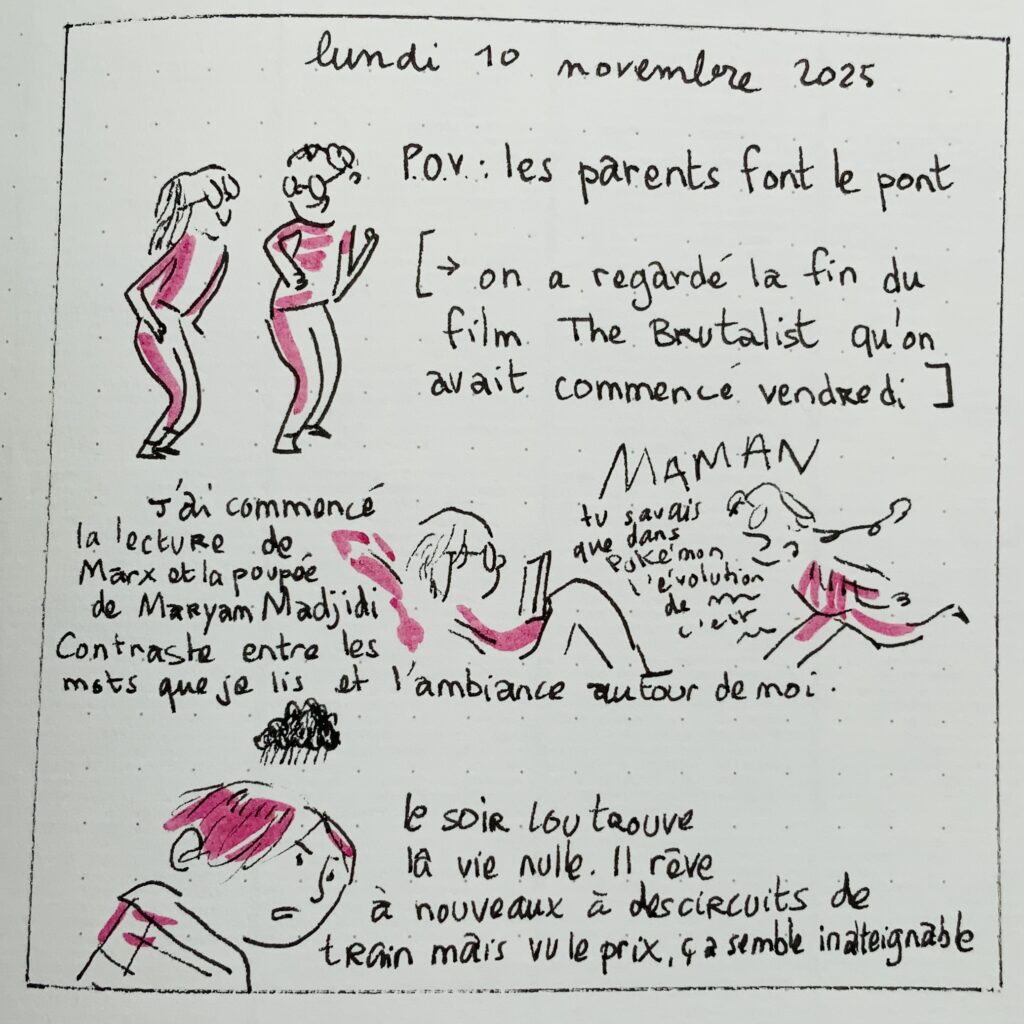 lundi 10 novembre 2025
P.O.V. : les parents font le pont
[→ on a regardé la fin du
film The Brutalist qu'on
avait commencé vendredi]
J'ai commencé
la lecture de
Marx et la poupée
de Maryam Madjidi
Contraste entre les
mots que je lis et l'ambiance autour de moi.
MAMAN
tu savais
que dans
Pokémon
l'évolution
de
c'est
le soir Lou trouve
lâ vie nulle. Il rêve
à nouveaux à des circuits de
train mais vu le prix, ça semble inatteignable